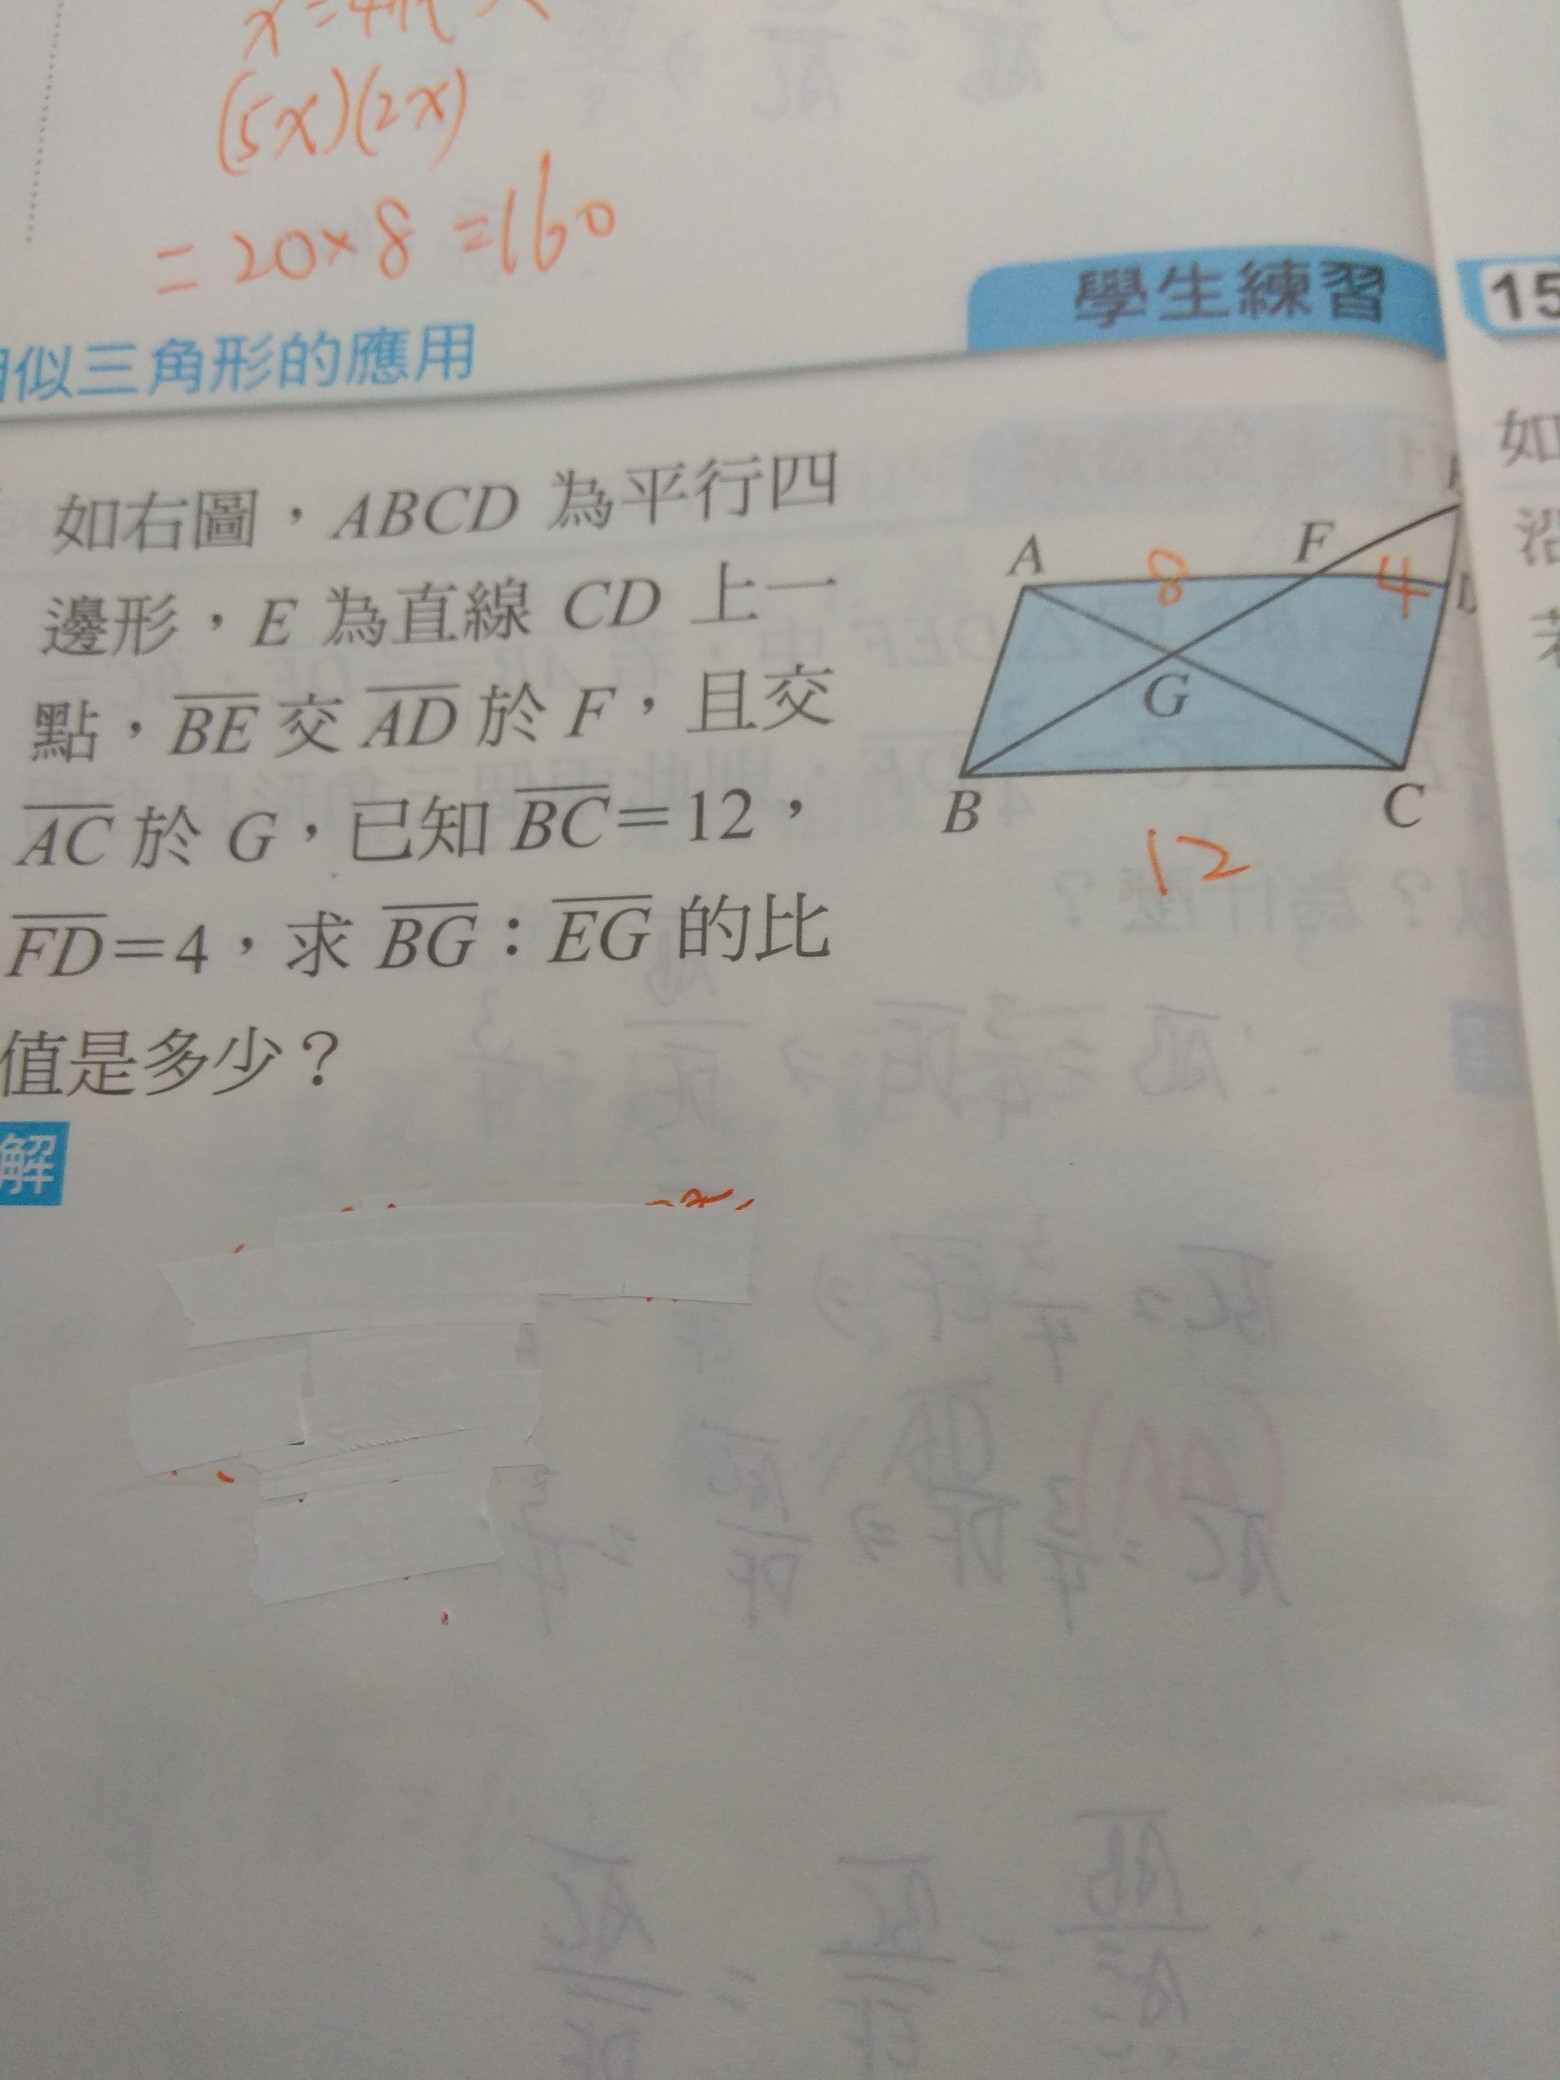 (5x)(2x)
= 20×8 =160
學生練習
15
似三角形的應用
如右圖,ABCD 為平行四
邊形,E 為直線 CD 上一
點,BE 交 AD 於 F,且交
AC 於 G,已知 BC=12,
FD=4,求 BG:EG 的比
值是多少?
解
A
8
F
4
G
B
C
12
如
沿